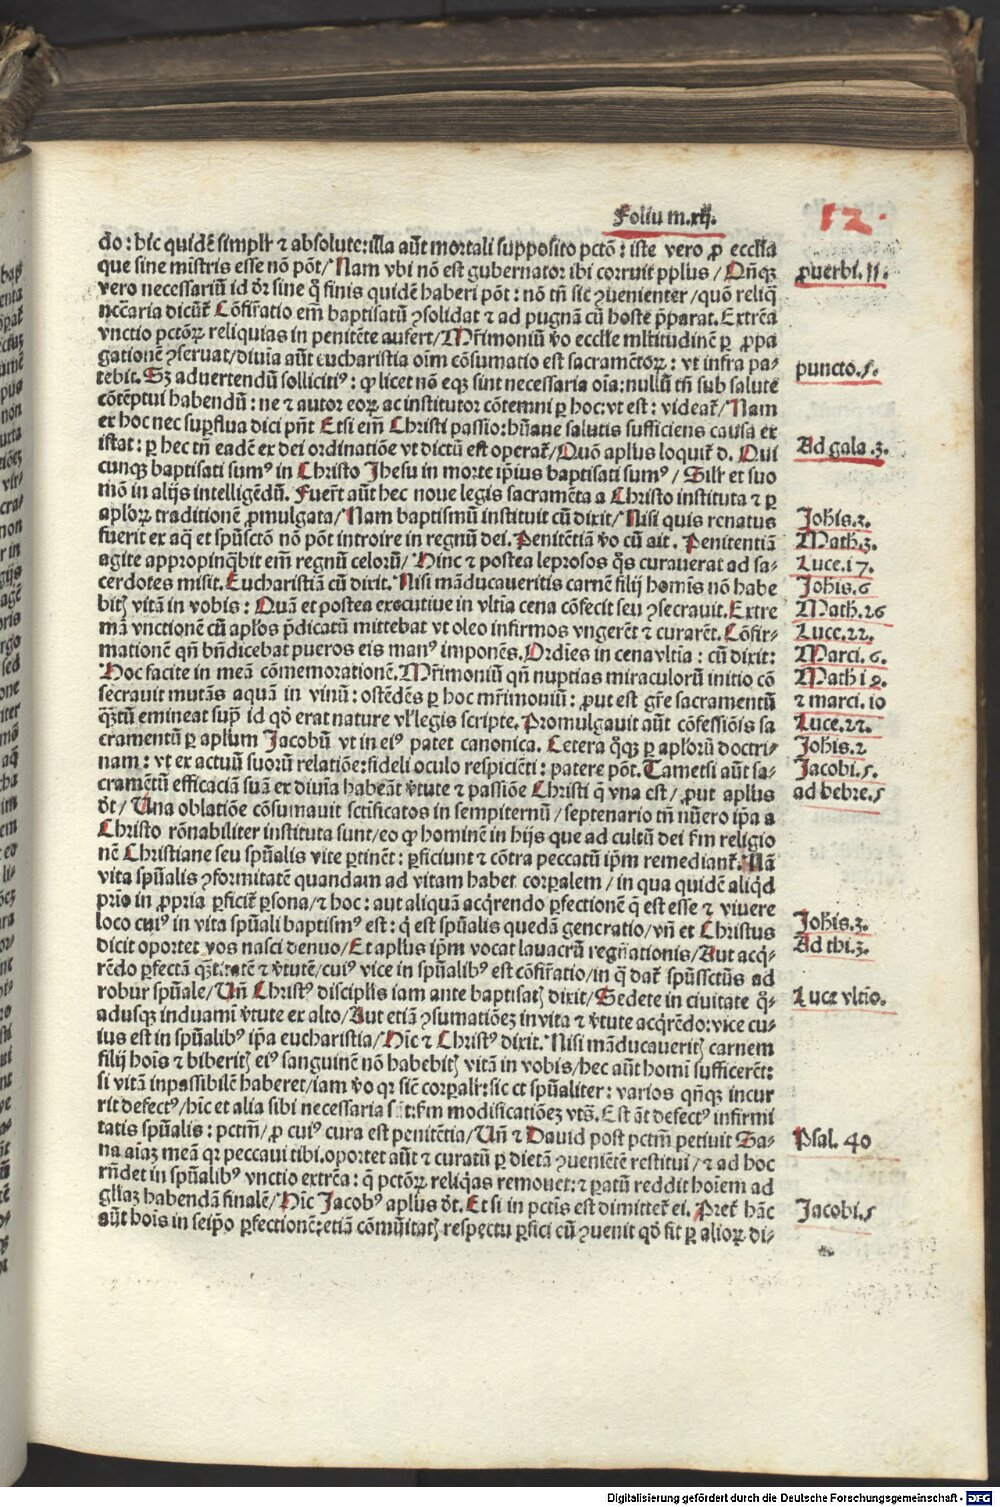 Foliũ m.xij.
12.
do: hic quidẽ simplr̃ ⁊ absolute: illa aũt mortali supposito pctõ: iste vero ꝓ eccl'ia
que sine mistris esse nõ põt/ Nam vbi nõ est gubernator ibi corruit ppl'us/ Qñqꝫ
ꝓuerbi. 11.
vero necessariũ id dr̃: sine q̃ finis quidẽ haberi põt: nõ tñ sic ꝯuenienter/ quõ reliq̃
ncc̃aria dicũt̃ Cõfir̃atio em̃ baptisatũ ꝯsolidat ⁊ ad pugnã cũ hoste p̃parat. Extrẽa
vnctio pctõꝝ reliquias in penitẽte aufert/ Mr̃imoniũ ṽo eccl'ie ml'titudinẽ ꝑ ꝓpa
gationẽ ꝯseruat/ diuĩa aũt eucharistia oĩm cõsumatio est sacramẽtoꝝ: vt infra pa⸗
puncto. 5.
tebit. Sꝫ aduertendũ sollicitiꝰ: ꝙ licet nõ eqꝫ sint necessaria oĩa: nullũ tñ sub salute
cõtẽptui habendũ: ne ⁊ autor eoꝝ ac institutor cõtemni ꝑ hoc: vt est: videat̃/ Nam
ex hoc nec suꝑflua dici pñt Etsi em̃ Christi passio: hũane salutis sufficiens causa ex
istat: ꝑ hec tñ eadẽ ex dei ordinatiõe vt dictũ est operat̃/ Quõ apl'us loquit̃ d. Qui
Ad gala. 3.
cunqꝫ baptisati sumꝰ in Christo Jhesu in morte ip̃ius baptisati sumꝰ/ Sil'r et suo
mõ in alijs intelligẽdũ. Fuer̃t aũt hec noue legis sacramẽta a Christo instituta ⁊ ꝑ
apl'oꝝ traditionẽ ꝓmulgata/ Nam baptismũ instituit cũ dixit/ Nisi quis renatus
Johis. 2.
fuerit ex aq̃ et spũsctõ nõ põt introire in regnũ dei. Penitẽtiã ṽo cũ ait. Penitentiã
Math. 3.
agite appropinq̃bit em̃ regnũ celorũ/ Hinc ⁊ postea leprosos q̃s curauerat ad sa⸗
Luce. 17.
cerdotes misit. Eucharistiã cũ dixit. Nisi mãducaueritis carnẽ filij homĩs nõ habe
Johis. 6
bitꝭ vitã in vobis: Quã et postea executiue in vltĩa cena cõfecit seu ꝯsecrauit. Extre
Math. 26
mã vnctionẽ cũ apl'os p̃dicatũ mittebat vt oleo infirmos vngerẽt ⁊ curarẽt. Cõfir⸗
Luce. 22.
mationẽ qñ bñdicebat pueros eis manꝰ imponẽs. Ordĩes in cena vltĩa: cũ dixit:
Marci. 6.
Hoc facite in meã cõmemorationẽ. Mr̃imoniũ qñ nuptias miraculorũ initio cõ
Math 19.
secrauit mutãs aquã in vinũ: ostẽdẽs ꝑ hoc mr̃imoniũ: ꝓut est gr̃e sacramentũ
⁊ marci. 10
q̃ꝫtũ emineat sup̃ id qd̃ erat nature vl' legis scripte. Promulgauit aũt cõfessiõis sa
Luce. 22.
cramentũ ꝑ apl'um Jacobũ vt in eiꝰ patet canonica. Cetera q̃qꝫ ꝑ apl'orũ doctri⸗
Johis. 2
nam: vt ex actuũ suorũ relatiõe: fideli oculo respiciẽti: patere põt. Tametsi aũt sa⸗
Jacobi. 5.
cramẽtũ efficaciã suã ex diuĩa habeãt ṽtute ⁊ passiõe Christi q̃ vna est/ ꝓut apl'us
ad hebre. 5
dr̃/ Una oblatiõe cõsumauit sctĩficatos in sempiternũ/ septenario tñ nũero ip̃a a
Christo rõnabiliter instituta sunt/ eo ꝙ hominẽ in hijs que ad cultũ dei fm̃ religio
nẽ Christiane seu spũalis vite ꝑtinẽt: ꝑficiunt ⁊ cõtra peccatũ ip̃m remediant̃. Nã
vita spũalis ꝯformitatẽ quandam ad vitam habet corꝑalem/ in qua quidẽ aliq̃d
prĩo in ꝓpria ꝑficit̃ ꝑsona/ ⁊ hoc: aut aliquã acq̃rendo ꝑfectionẽ q̃ est esse ⁊ viuere
loco cuiꝰ in vita spũali baptismꝰ est: q̃ est spũalis quedã generatio/ vñ et Christus
Johis. 3.
dicit oportet vos nasci denuo/ Et apl'us ip̃m vocat lauacrũ regñationis/ Aut acq̃⸗
Ad thi. 3.
rẽdo ꝑfectã q̃ꝫtitatẽ ⁊ ṽtutẽ/ cuiꝰ vice in spũalibꝰ est cõfir̃atio/ in q̃ dat̃ spũssctũs ad
robur spũale/ Uñ Christꝰ discipl'is iam ante baptisatꝭ dixit/ Sedete in ciuitate q̃⸗
Luce vltĩo.
adusqꝫ induamĩ ṽtute ex alto/ Aut etiã ꝯsumatiõeꝫ in vita ⁊ ṽtute acq̃rẽdo: vice cu⸗
ius est in spũalibꝰ ip̃a eucharistia/ Hĩc ⁊ Christꝰ dixit. Nisi mãducaueritꝭ carnem
filij hoĩs ⁊ biberitꝭ eiꝰ sanguinẽ nõ habebitꝭ vitã in vobis/ hec aũt homĩ sufficerẽt:
si vitã inpassibilẽ haberet/ iam ṽo qr̃ sic̃ corꝑalr̃: sic et spũaliter: varios qñqꝫ incur
rit defectꝰ/ hĩc et alia sibi necessaria sũt: fm̃ modificatiõeꝫ vts̃. Est ãt defectꝰ infirmi
tatis spũalis: pctm̃/ ꝓ cuiꝰ cura est penitẽtia/ Uñ ⁊ Dauid post pctm̃ petiuit Sa⸗
Psal. 40
na aĩaꝫ meã qr̃ peccaui tibi. oportet aũt ⁊ curatũ ꝑ dietã ꝯueniẽtẽ restitui/ ⁊ ad hoc
rñdet in spũalibꝰ vnctio extrẽa: q̃ pctõꝝ reliq̃as remouet: ⁊ ꝑatũ reddit hoĩem ad
gl'iaꝫ habendã finalẽ/ Hĩc Jacobꝰ apl'us dr̃. Et si in pctĩs est dimittet̃ ei. Preter̃ hãc
Jacobi. 5
aũt hoĩs in seip̃o ꝑfectionẽ: etiã cõmũitatꝭ respectu ꝑfici cũ ꝯuenit qd̃ fit ꝑ alioꝝ di⸗
Digitalisierung gefördert durch die Deutsche Forschungsgemeinschaft - DFG